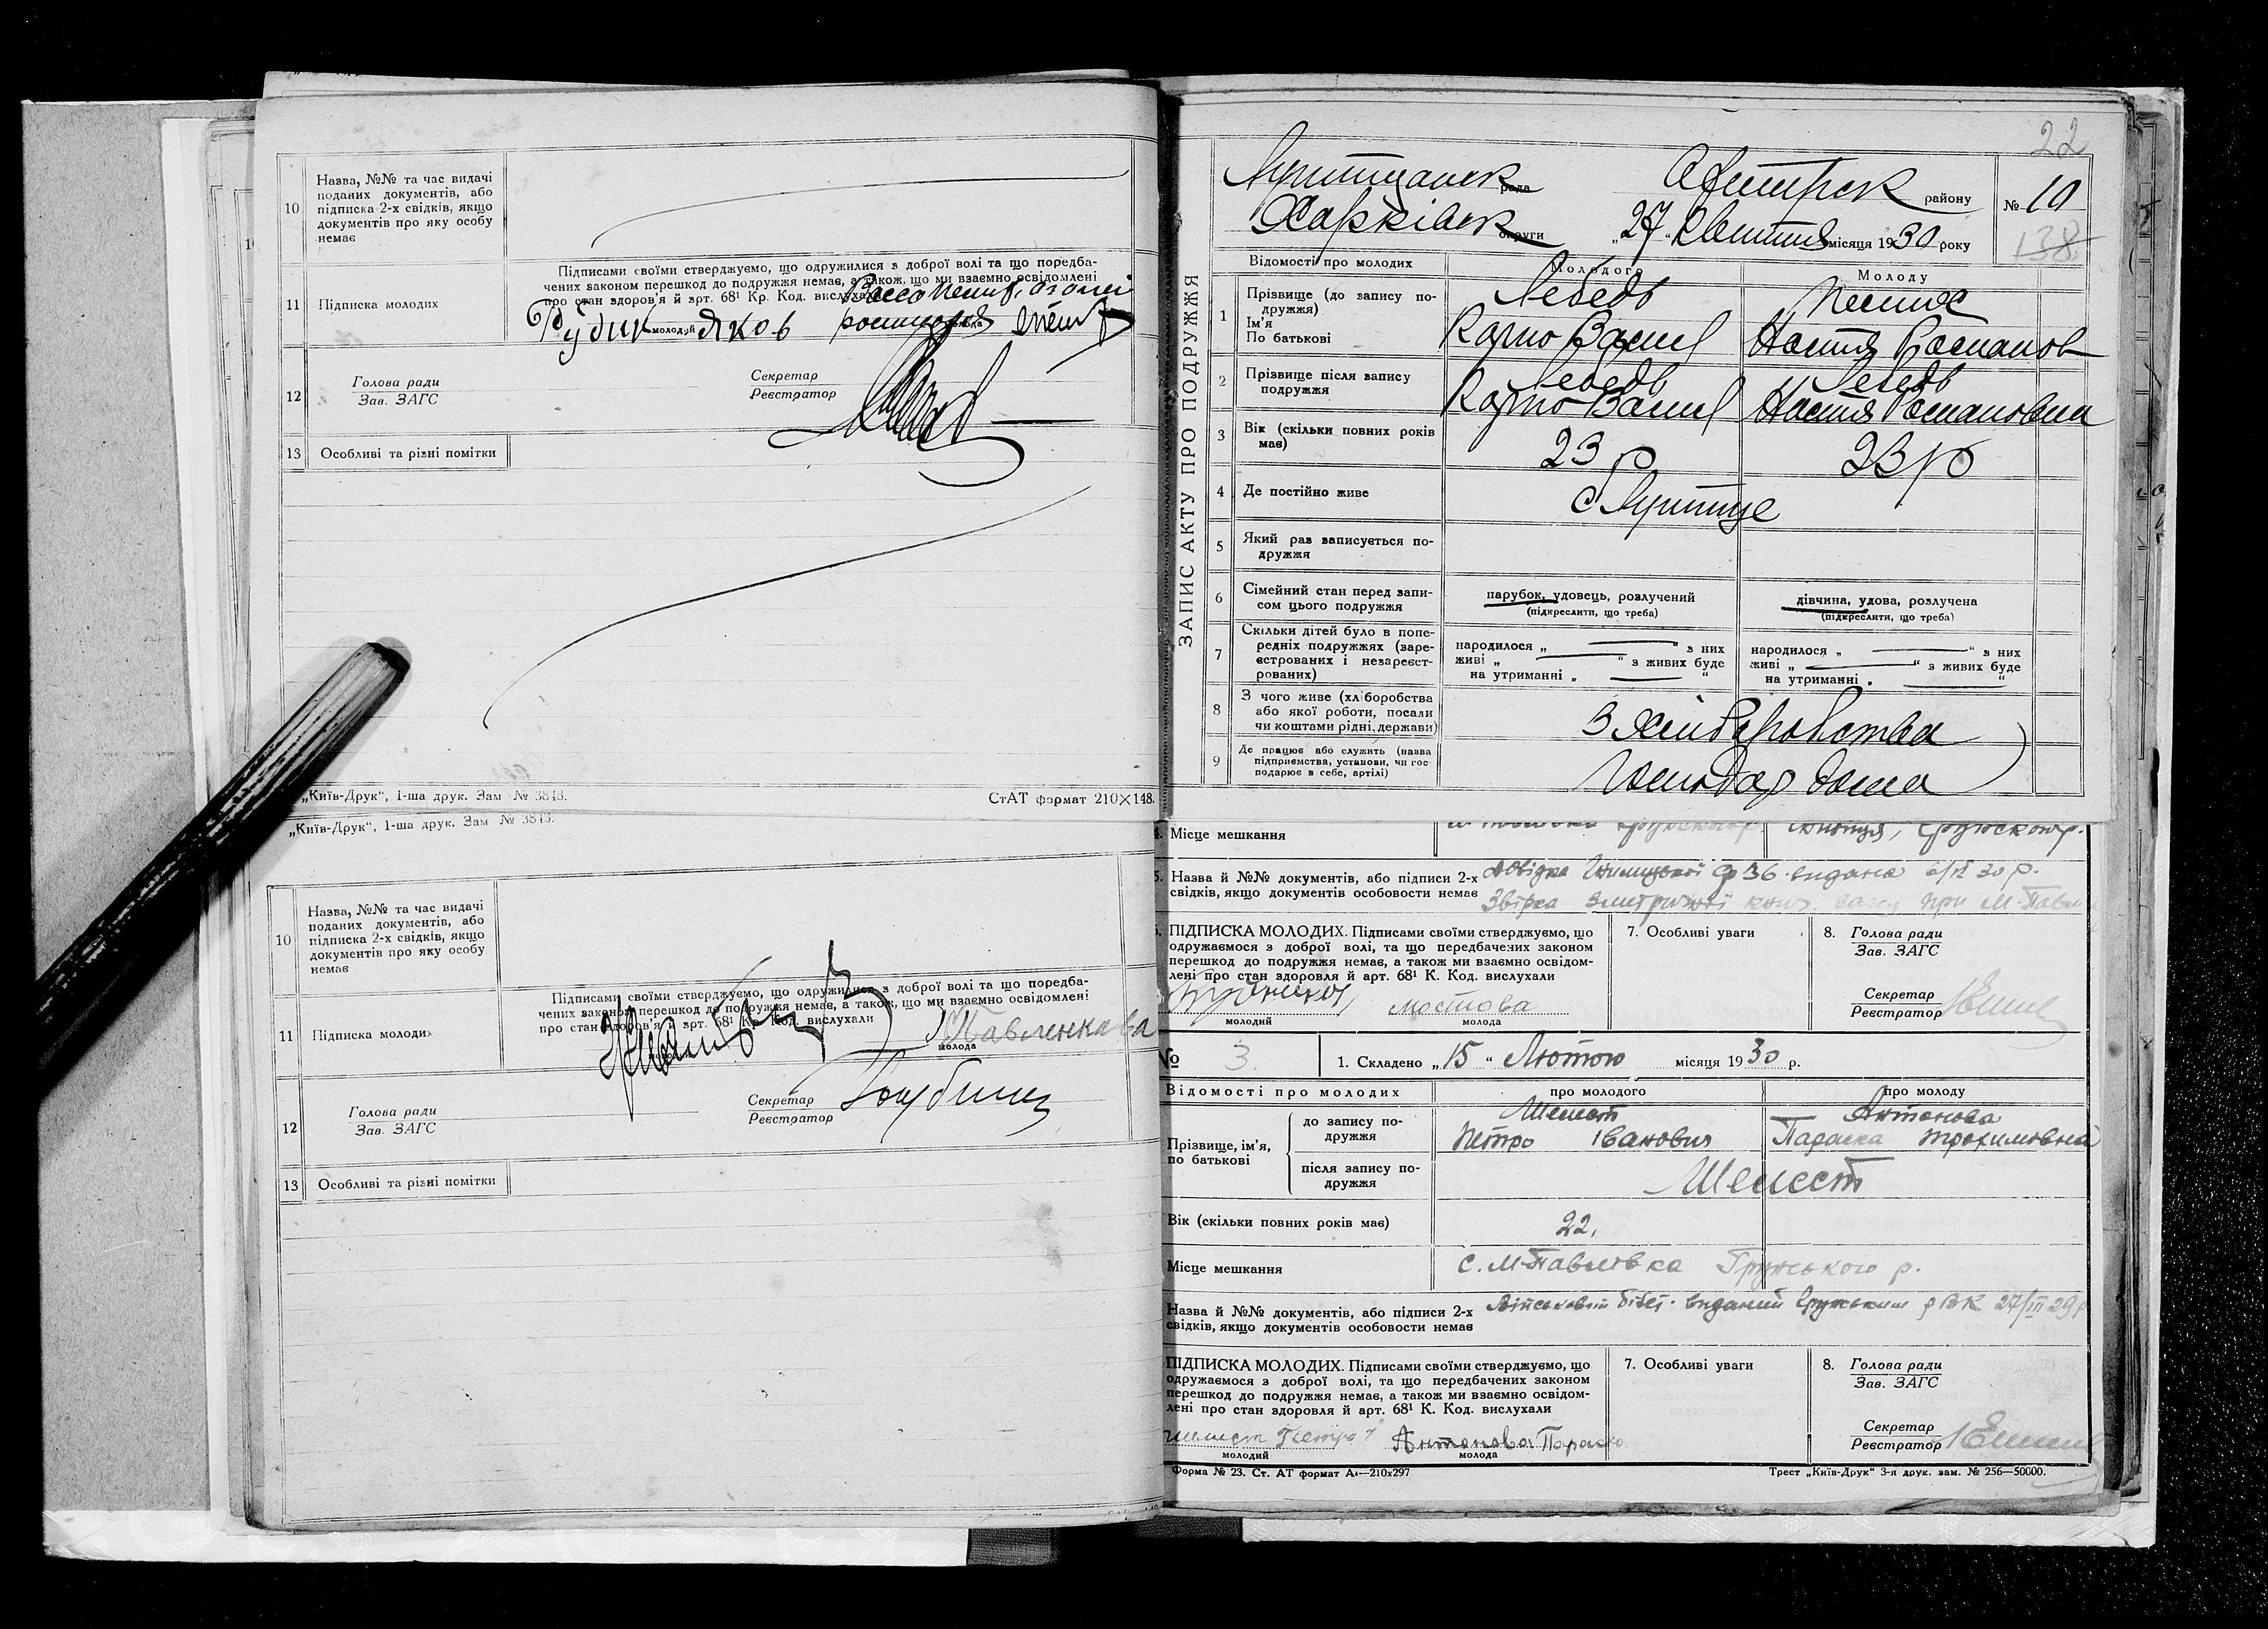 10
Назва, №№ та час видачі
поданих документів, або
підписка 2-х свідків, якщо
документів про яку особу
немає
11
Підписка молодих
Підписами своїми стверджуємо, що одружилися з доброї волі та що поредба-
чених законом перешкод до подружжя немає, а також, що ми взаємно освідомлені
про стан здоров'я й зрт. 68¹ Кр. Код. вислухали
Рудик молодий Яков
12
Голова ради
Зав. ЗАГС
Секретар
Реєстратор
13
Особливі та різні помітки
„Київ-Друк“, 1-ша друк. Зам № 3843.
СтАТ формат 210×148.
„Київ-Друк“, 1-ша друк. Зам № 3843.
10
Назва, №№ та час видачі
поданих документів, або
підписка 2-х свідків, якщо
документів про яку особу
немає
11
Підписка молодих
Підписами своїми стверджуємо, що одружилися з доброї волі та що поредба-
чених законом перешкод до подружжя немає, а також, що ми взаємно освідомлені
про стан здоров'я й зрт. 68¹ Кр. Код. вислухали
Павленкова
молода
12
Голова ради
Зав. ЗАГС
Секретар
Реєстратор
13
Особливі та різні помітки
22
рада
району
№ 10
Харківськ округи
„27“ Квітня місяця 1930 року
138
ЗАПИС АКТУ ПРО ПОДРУЖЖЯ
Відомості про молодих
Молодого
Молоду
1
Прізвище (до запису по-
дружжя)
Ім'я
По батькові
Лебедь
Настя Романов
2
Прізвище після запису
подружжя
Лебедь
Лебедь
Настя Романовна
3
Вік (скільки повних років
має)
23 р
23 р
4
Де постійно живе
5
Який раз записується по-
дружжя
6
Сімейний стан перед запи-
сом цього подружжя
парубок, удовець, розлучений
(підкреслити, що треба)
дівчина, удова, розлучена
(підкреслити, що треба)
7
Скільки дітей було в попе-
редніх подружжях (заре-
єстрованих і незареєст-
рованих)
народилося „ “ з них
живі „ “ з живих буде
на утриманні „ “
народилося „ “ з них
живі „ “ з живих буде
на утриманні „ “
8
З чого живе (хліборобства
або якої роботи, посали
чи коштами рідні, держави)
З хліборобства
9
Де працює або служить (назва
підприємства, установи, чи гос-
подарює в себе, артілі)
Господар дома
4. Місце мешкання
5. Назва й №№ документів, або підписи 2-х
свідків, якщо документів особовости немає
6. ПІДПИСКА МОЛОДИХ. Підписами своїми стверджуємо, що
одружаємося з доброї волі, та що передбачених законом
перешкод до подружжя немає, а також ми взаємно освідом-
лені про стан здоровля й арт. 68¹ К. Код. вислухали
мостова
молодий
молода
7. Особливі уваги
8. Голова ради
Зав. ЗАГС
Секретар
Реєстратор
№ 3.
1. Складено „15“ Лютого місяця 1930 р.
Відомості про молодих
про молодого
про молоду
Прізвище, ім'я,
по батькові
до запису по-
дружжя
Шелест
Петро Іванович
Антонова
Параска Трохимовна
після запису по-
дружжя
Шелест
Вік (скільки повних років має)
22,
Місце мешкання
с. М-Павлівка Грунського р.
Назва й №№ документів, або підписи 2-х
свідків, якщо документів особовости немає
Військовий білет. виданий Грунським РВК 27/III 29р
ПІДПИСКА МОЛОДИХ. Підписами своїми стверджуємо, що
одружаємося з доброї волі, та що передбачених законом
перешкод до подружжя немає, а також ми взаємно освідом-
лені про стан здоровля й арт. 68¹ К. Код. вислухали
шелест Петро
Антонова Параска
молодий
молода
7. Особливі уваги
8. Голова ради
Зав. ЗАГС
Секретар
Реєстратор
Форма № 23. Ст. АТ формат А₄—210х297
Трест „Київ-Друк“ 3-я друк. зам. № 256—50000.